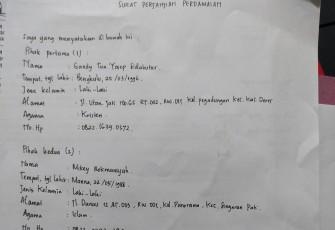 SURAT PERJANJIAN PERDAMAIAN
Saya yang menyatakan di bawah ini
Pihak pertama (1) :
Nama : Gandy Tua
Tempat, tgl lahir : Bengkulu, 25/03/1996.
Jenis kelamin : Laki-laki
Alamat : Jl. Utan Jati No.65 RT.002, RW.011, kel. pegadungan kec.
Agama : Kristen
No. Hp : 0822.5639.0572.
Pihak kedua (2) :
Nama : Mikey
Tempat, tgl Lahir : Manna, 26/05/1988.
Jenis Kelamin : Laki-laki
Alamat : Jl. Danau 12 RT.003, RW.001, Kel. Panorama, Kec. Singaran Pati.
Agama : Islam.
No Hp